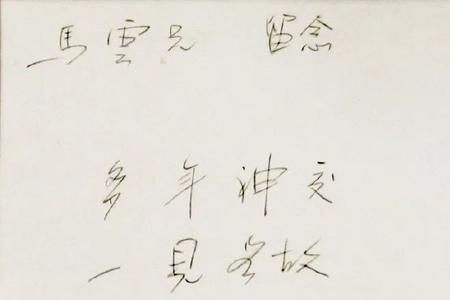 馬雲兄 留念
多年神交
一見如故